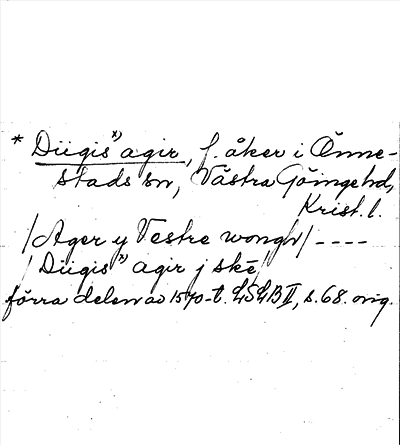 * Diigis x) agir, f. åker i Önne-
stads sn, Västra Göingehd,
Krist. l.
/Ager y Vestre wongh/ ----
/Diigis x) agir j skē/
förra delen av 1570-t. LSLB II, s. 68. orig.